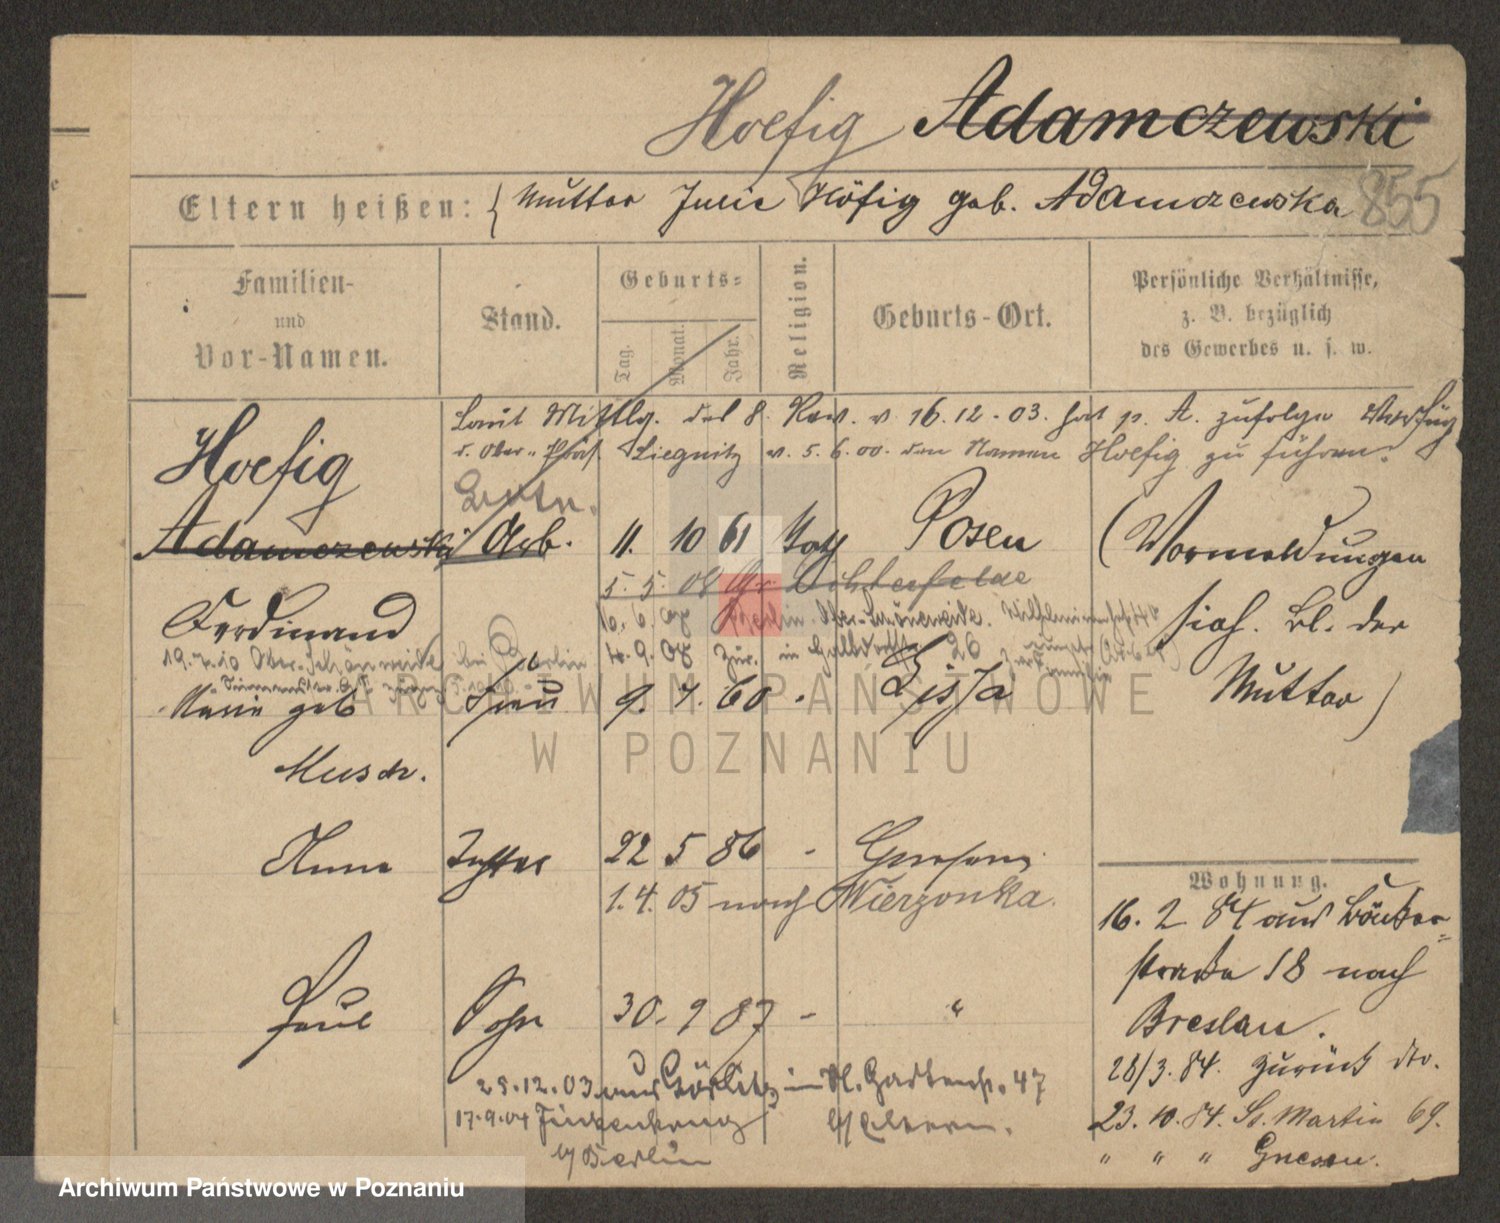 Hoefig Adamczewski
Eltern heißen: { Mutter Julie Höfig geb. Adamczewska 855
Familien-
und
Vor-Namen.
Stand.
Geburts-
Tag.
Monat.
Jahr.
Religion.
Geburts-Ort.
Persönliche Verhältnisse,
z. B. bezüglich
des Gewerbes u. s. w.
Laut Mittlg. des 8. Rev. v. 16.12.03. hat p. A. zufolge Verfüg
d. Ober-Präs. Liegnitz v. 5.6.00. den Namen Hoefig zu führen.
Hoefig
Adamczewski Arb. 11. 10 61 Kath Posen (Vormeldungen
5. 5. 08 Gr. Lichterfelde
Ferdinand
16. 6. 08 Berlin Ober-Schöneweide. sieh. Bl. der
19.7.10 Ober-Schöneweide bei Berlin
4. 9. 08 Zur. in 26
Marie geb Frau 9. 7. 60 - Lissa Mutter)
Musch.
Anna Tochter 22 5 86 - Gnesen
1. 4. 05 nach Wierzonka.
Wohnung.
16. 2 84 aus Bäcker-
straße 18 nach
Breslau.
Paul Sohn 30. 9 87 - "
28/3. 84. zurück dto.
29.12.03 aus Görlitz in Gartenstr. 47
23. 10. 84. St. Martin 69.
17.9.04 b/ Eltern.
b/ Berlin
" " " Gnesen.
ARCHIWUM PAŃSTWOWE
W POZNANIU
Archiwum Państwowe w Poznaniu